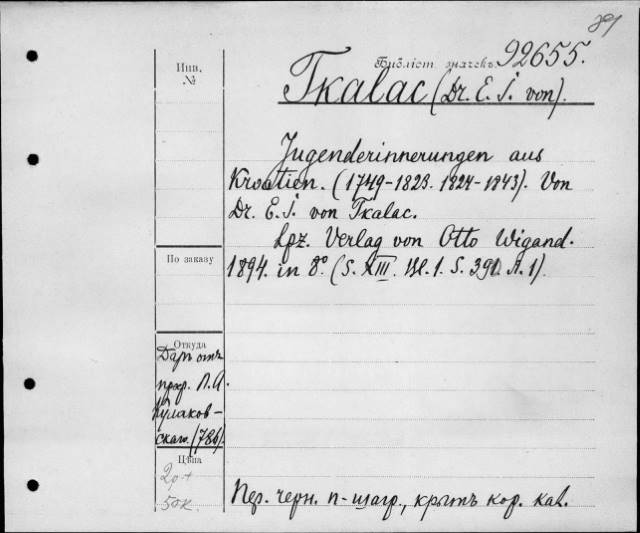 381
Библіот. значекъ 92655.
Инв.
№
Tkalac (Dr. E. I. von).
Jugenderinnerungen aus
Kroatien. (1749-1823. 1824-1843). Von
Dr. E. I. von Tkalac.
Lpz. Verlag von Otto Wigand.
По заказу
1894. in 8° (S. XIII. Bl. 1. S. 391. A. 1).
Откуда
Даръ отъ
проф. П. А.
Кулаков-
скаго. (786).
Цѣна
2р.+
50к.
Пер. черн. п-шагр., крытъ кор. кал.